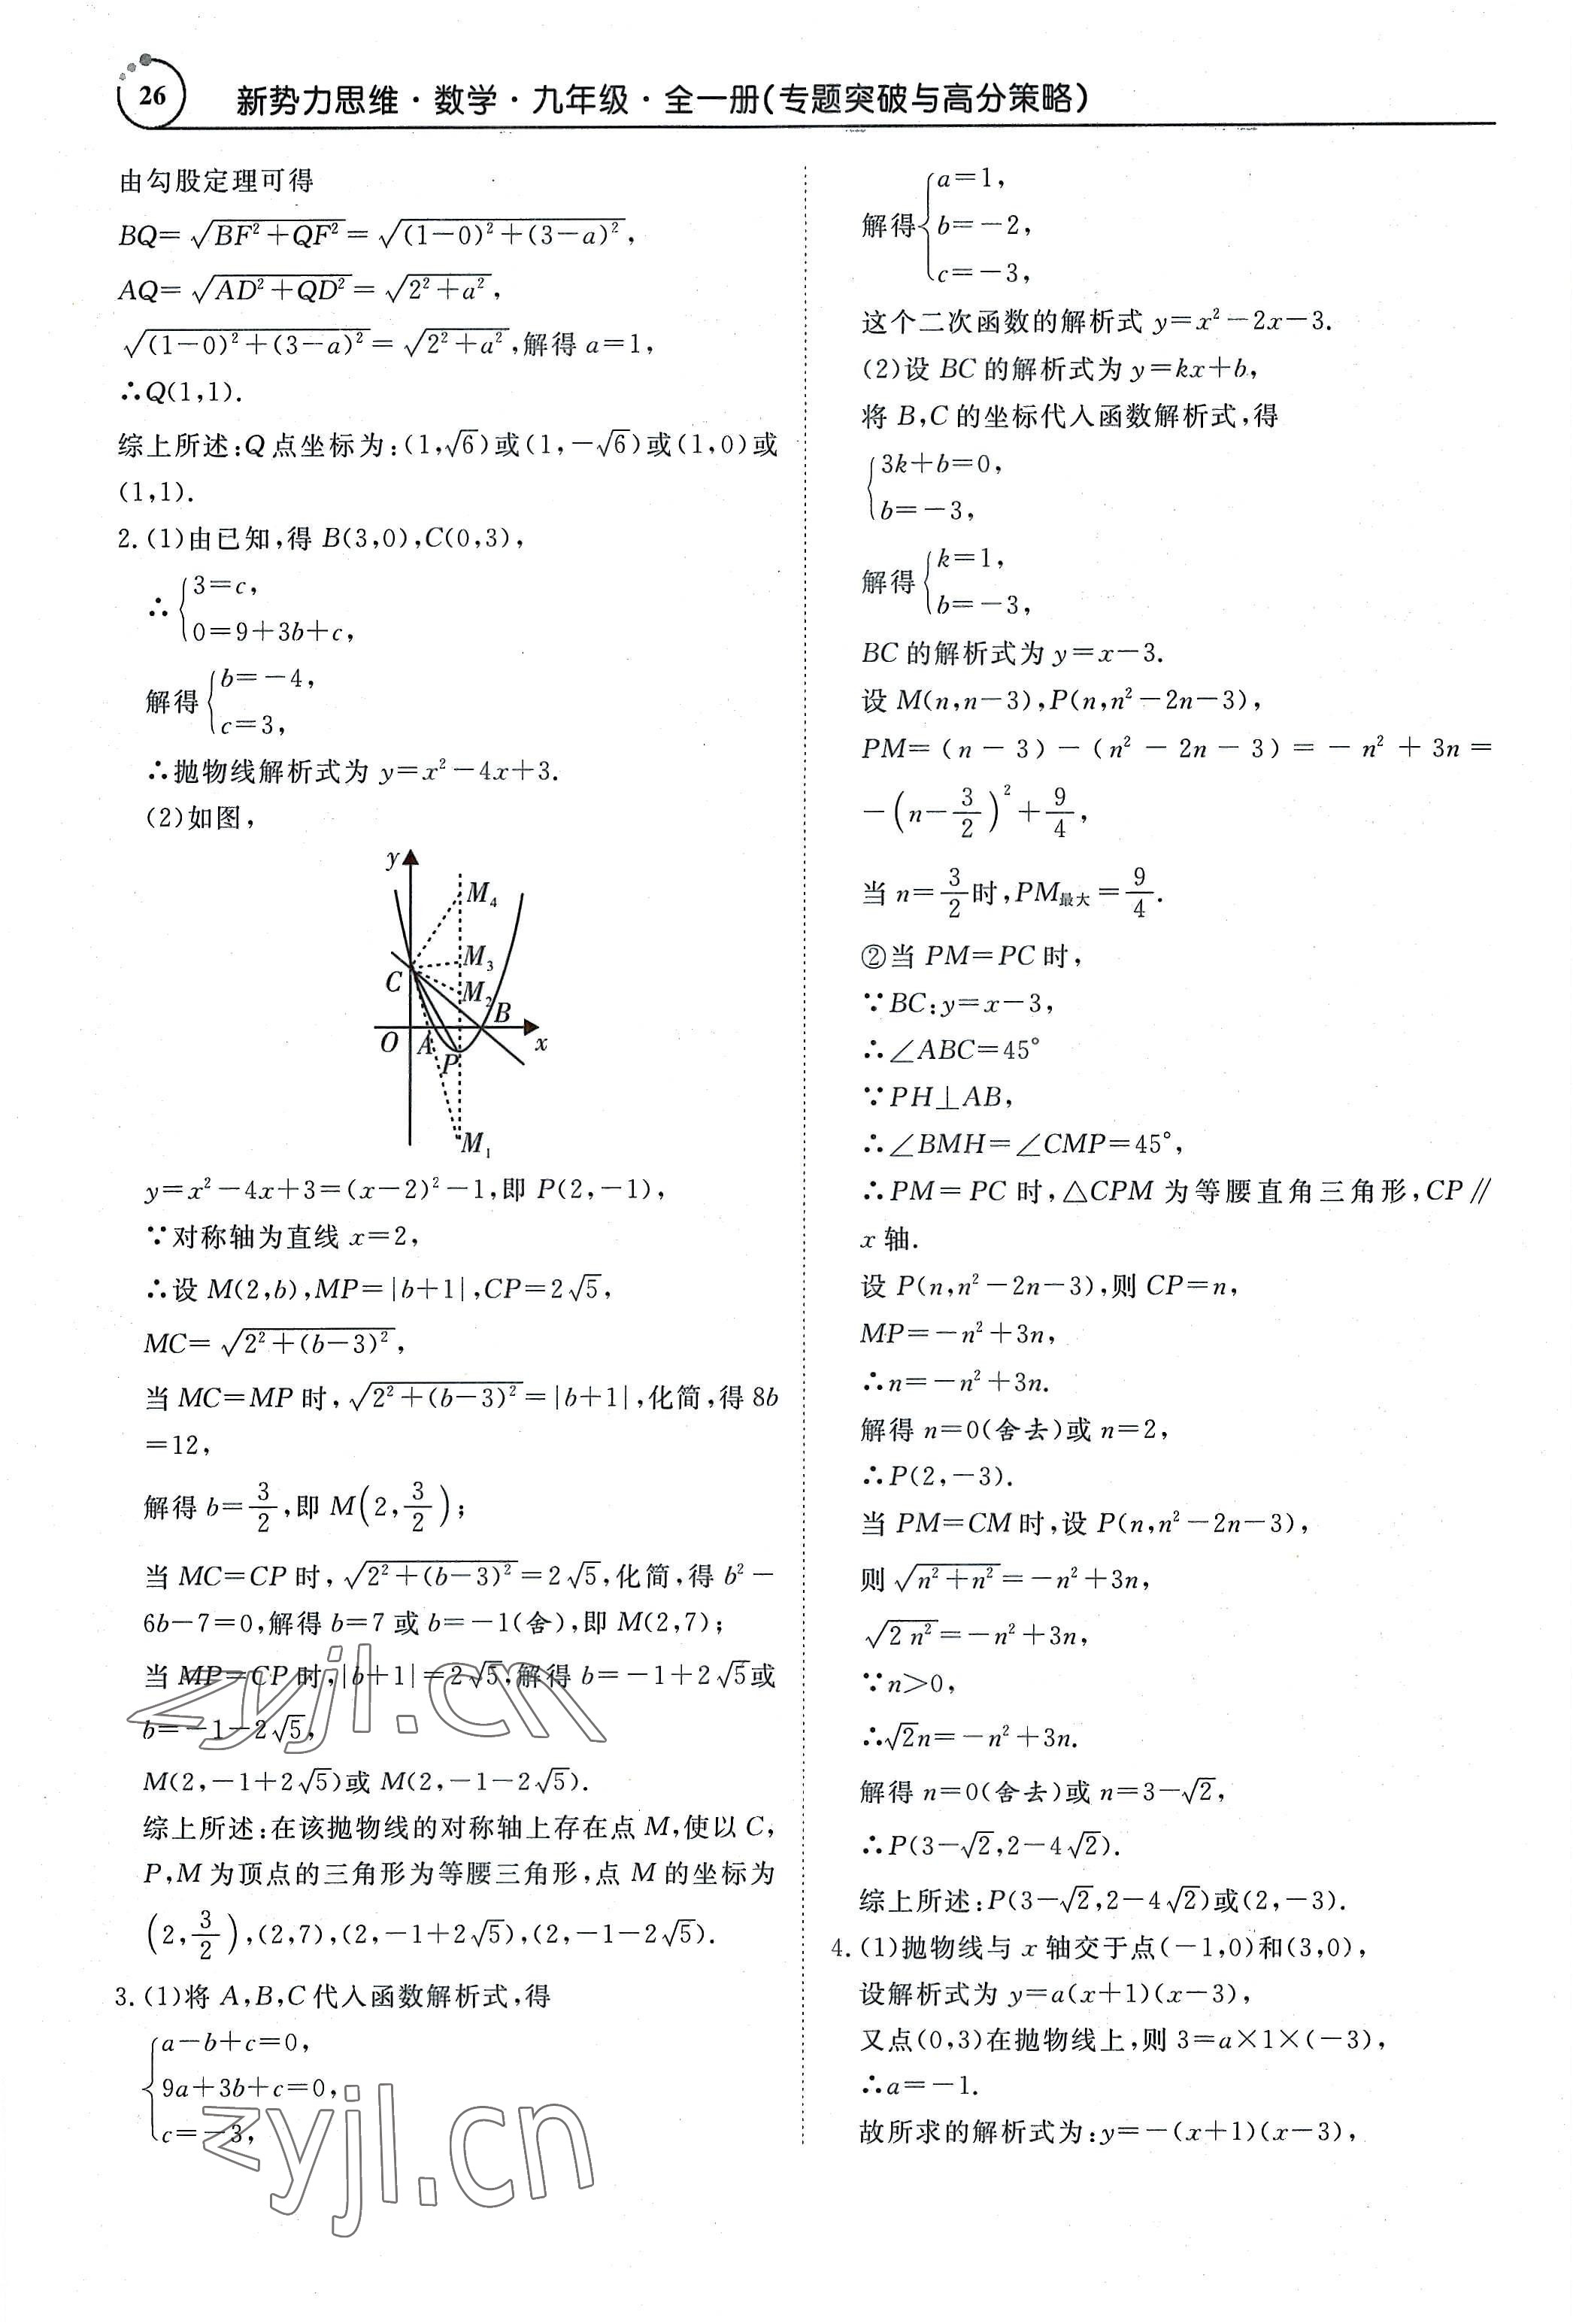 26
新势力思维·数学·九年级·全一册(专题突破与高分策略)
由勾股定理可得
BQ=√(BF²+QF²)=√((1-0)²+(3-a)²),
AQ=√(AD²+QD²)=√(2²+a²),
√((1-0)²+(3-a)²)=√(2²+a²),解得a=1,
∴Q(1,1).
综上所述:Q点坐标为:(1,√6)或(1,-√6)或(1,0)或
(1,1).
2.(1)由已知,得B(3,0),C(0,3),
∴{3=c,
0=9+3b+c,
解得{b=-4,
c=3,
∴抛物线解析式为y=x²-4x+3.
(2)如图,
y
M₄
M₃
C
M₂
B
O A P x
M₁
y=x²-4x+3=(x-2)²-1,即P(2,-1),
∵对称轴为直线x=2,
∴设M(2,b),MP=|b+1|,CP=2√5,
MC=√(2²+(b-3)²),
当MC=MP时,√(2²+(b-3)²)=|b+1|,化简,得8b
=12,
解得b=3/2,即M(2,3/2);
当MC=CP时,√(2²+(b-3)²)=2√5,化简,得b²-
6b-7=0,解得b=7或b=-1(舍),即M(2,7);
当MP=CP时,|b+1|=2√5,解得b=-1+2√5或
b=-1-2√5,
M(2,-1+2√5)或M(2,-1-2√5).
综上所述:在该抛物线的对称轴上存在点M,使以C,
P,M为顶点的三角形为等腰三角形,点M的坐标为
(2,3/2),(2,7),(2,-1+2√5),(2,-1-2√5).
3.(1)将A,B,C代入函数解析式,得
{a-b+c=0,
9a+3b+c=0,
c=-3,
解得{a=1,
b=-2,
c=-3,
这个二次函数的解析式y=x²-2x-3.
(2)设BC的解析式为y=kx+b,
将B,C的坐标代入函数解析式,得
{3k+b=0,
b=-3,
解得{k=1,
b=-3,
BC的解析式为y=x-3.
设M(n,n-3),P(n,n²-2n-3),
PM=(n-3)-(n²-2n-3)=-n²+3n=
-(n-3/2)²+9/4,
当n=3/2时,PM最大=9/4.
②当PM=PC时,
∵BC:y=x-3,
∴∠ABC=45°
∵PH⊥AB,
∴∠BMH=∠CMP=45°,
∴PM=PC时,△CPM为等腰直角三角形,CP∥
x轴.
设P(n,n²-2n-3),则CP=n,
MP=-n²+3n,
∴n=-n²+3n.
解得n=0(舍去)或n=2,
∴P(2,-3).
当PM=CM时,设P(n,n²-2n-3),
则√(n²+n²)=-n²+3n,
√(2n²)=-n²+3n,
∵n>0,
∴√2n=-n²+3n.
解得n=0(舍去)或n=3-√2,
∴P(3-√2,2-4√2).
综上所述:P(3-√2,2-4√2)或(2,-3).
4.(1)抛物线与x轴交于点(-1,0)和(3,0),
设解析式为y=a(x+1)(x-3),
又点(0,3)在抛物线上,则3=a×1×(-3),
∴a=-1.
故所求的解析式为:y=-(x+1)(x-3),
zyjl.cn
zyjl.cn